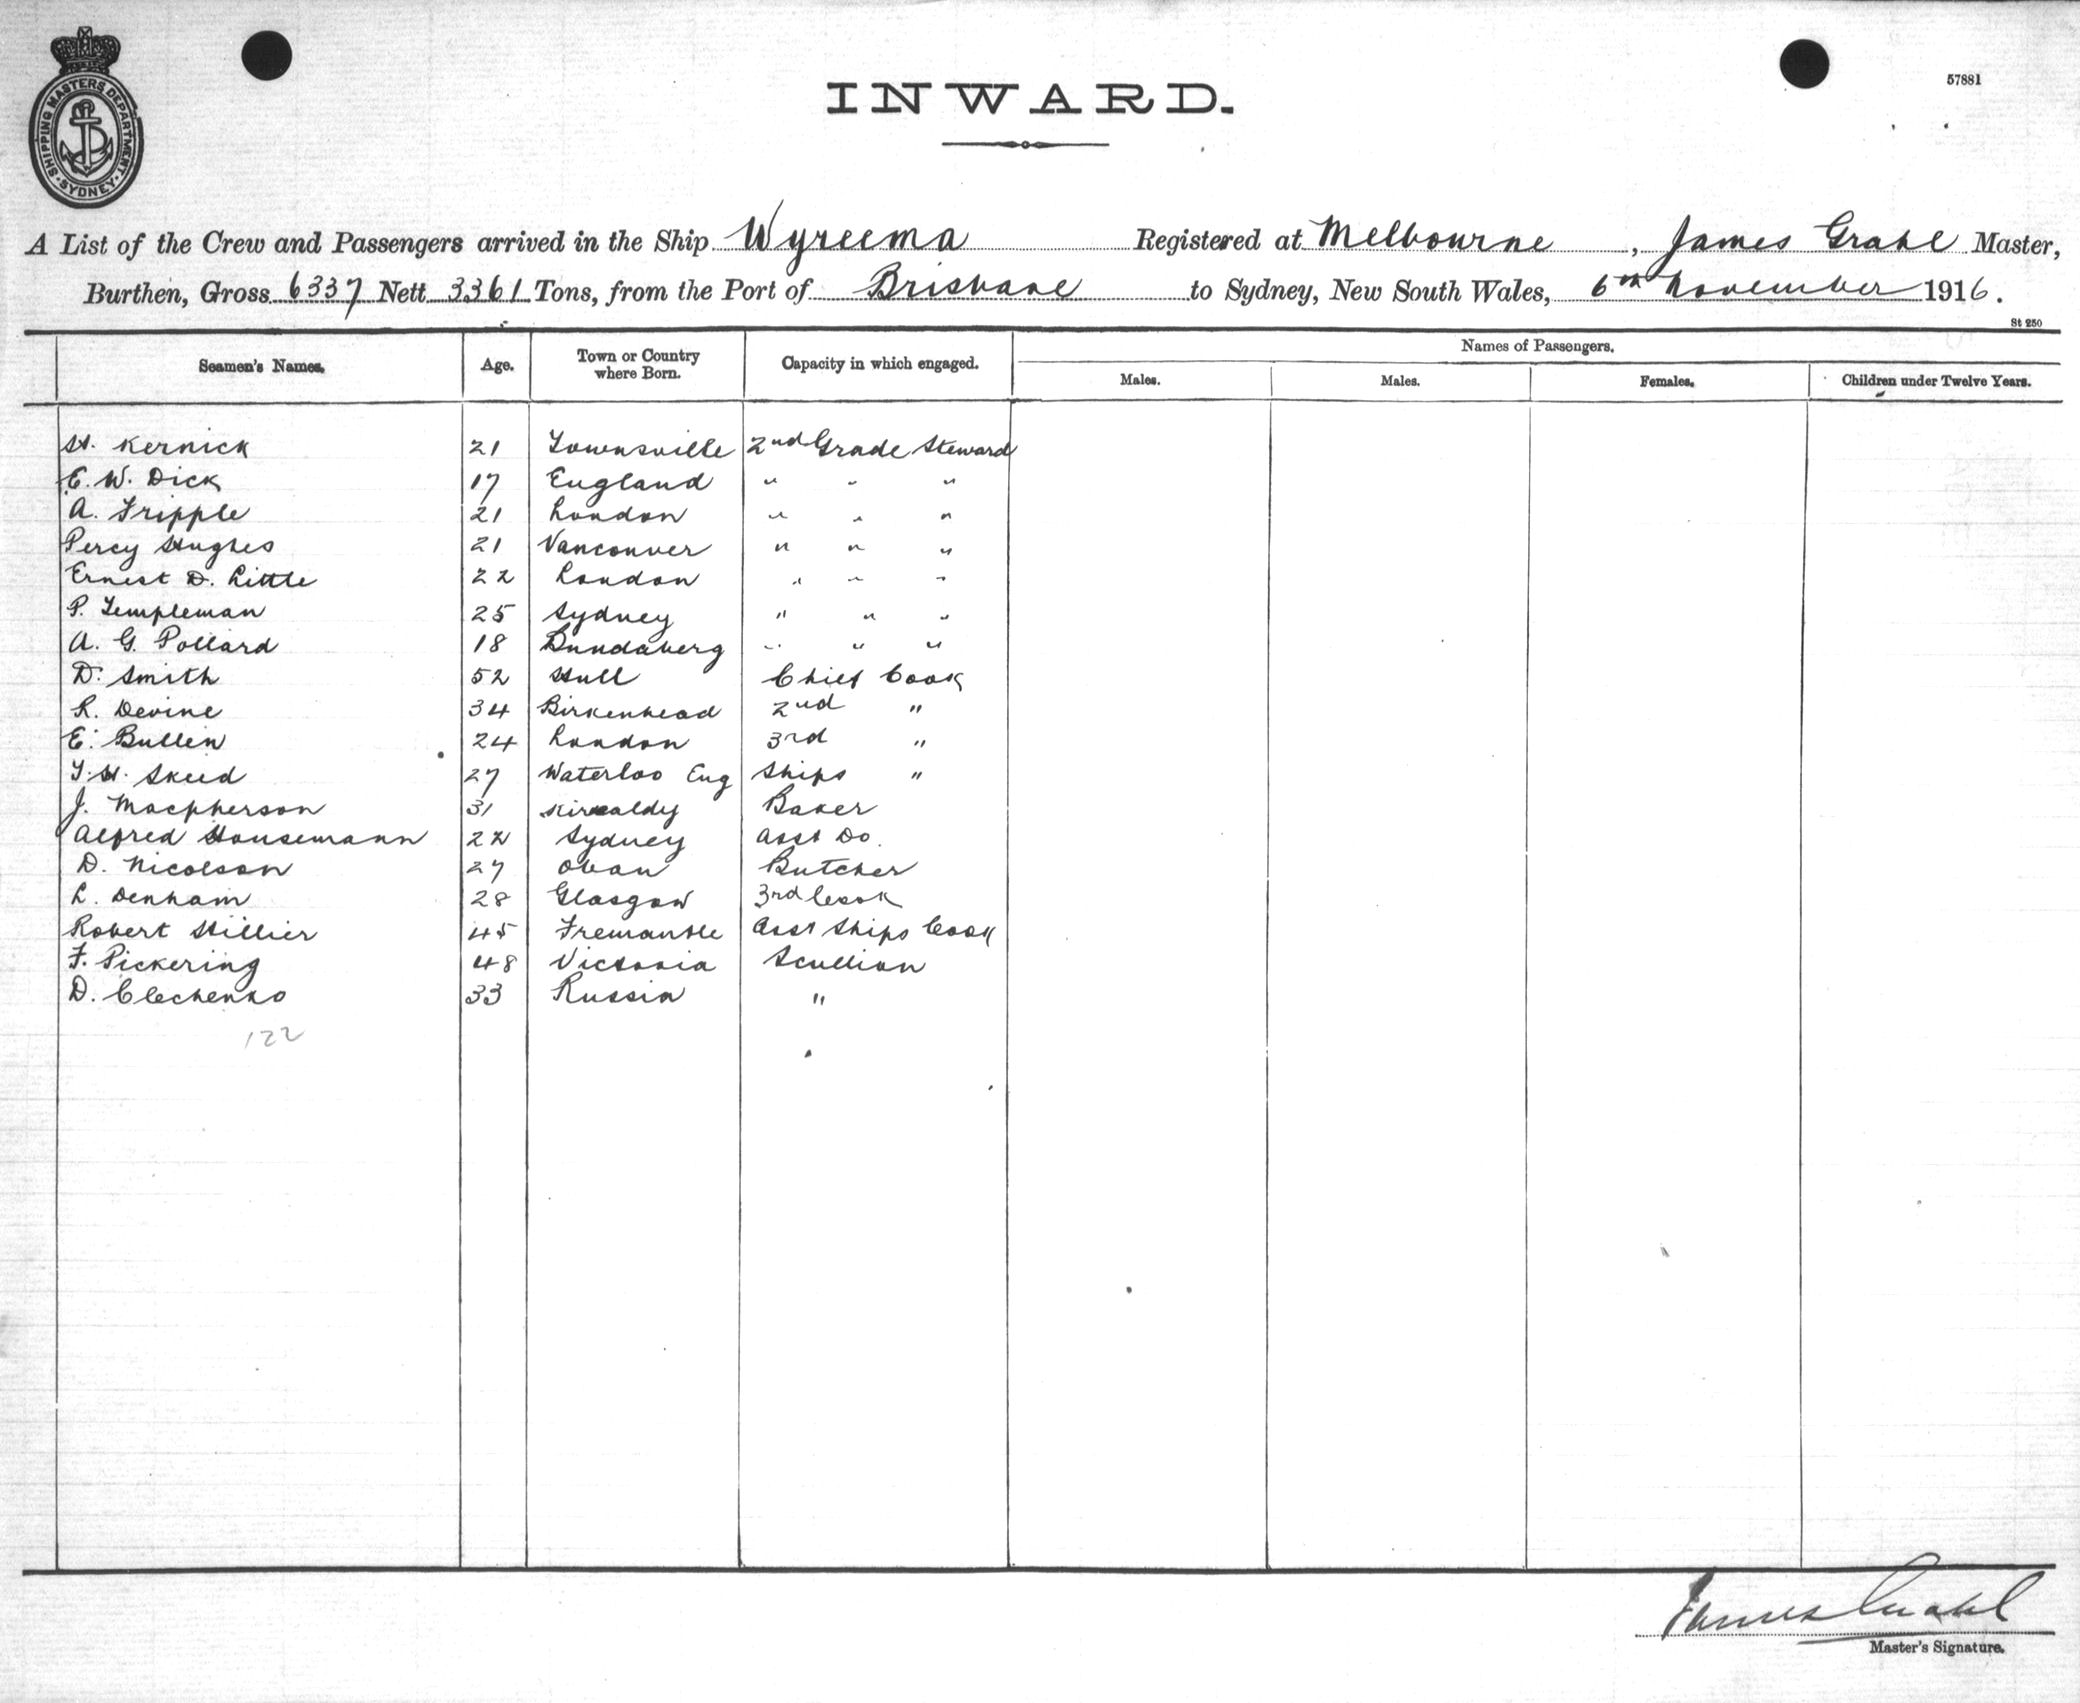 SHIPPING MASTERS DEPARTMENT
SYDNEY
57881
INWARD.
A List of the Crew and Passengers arrived in the Ship Wyreema Registered at Melbourne, James Grahl Master,
Burthen, Gross 6337 Nett 3361 Tons, from the Port of Brisbane to Sydney, New South Wales, 6th November 1916.
St 250
Seamen's Names. Age. Town or Country where Born. Capacity in which engaged. Names of Passengers.
Males. Males. Females. Children under Twelve Years.
H. Kernick 21 Townsville 2nd Grade Steward
E. W. Dick 17 England " " "
A. Tripple 21 London " " "
Percy Hughes 21 Vancouver " " "
Ernest D. Little 22 London " " "
P. Templeman 25 Sydney " " "
A. G. Pollard 18 Bundaberg " " "
D. Smith 52 Hull Chief Cook
R. Devine 34 Birkenhead 2nd "
E. Bullen 24 London 3rd "
T. H. Skeed 27 Waterloo Eng Ships "
J. Macpherson 31 Kircaldy Baker
Alfred Housemann 22 Sydney Asst Do.
D. Nicolson 27 Oban Butcher
L. Denham 28 Glasgow 3rd Cook
Robert Hillier 45 Fremantle Asst Ships Cook
F. Pickering 48 Victoria Scullion
D. Clechenko 33 Russia "
122
James Grahl
Master's Signature.